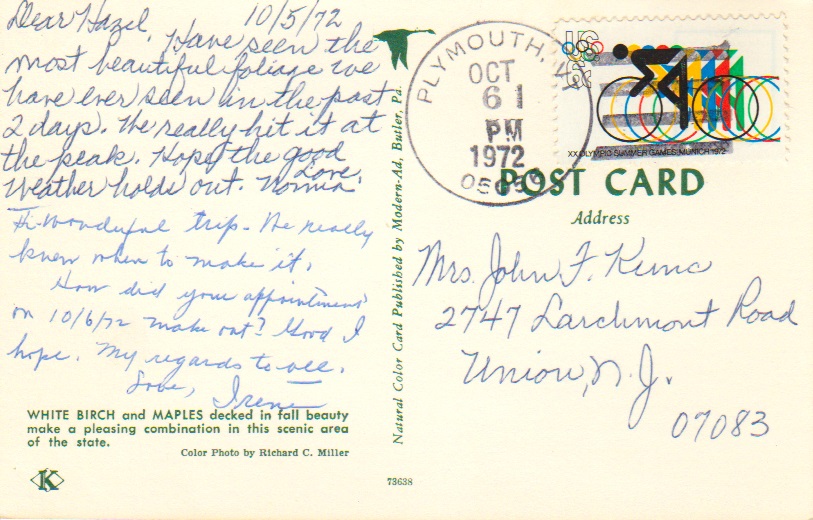 Dear Hazel, 10/5/72
Have seen the
most beautiful foliage we
have ever seen in the past
2 days. We really hit it at
the peak. Hope the good
weather holds out. Love,
Norma
Hi-Wonderful trip - We really
knew when to make it.
How did your appointment
on 10/6/72 make out? Good I
hope. My regards to all.
Love, Irene
WHITE BIRCH and MAPLES decked in fall beauty
make a pleasing combination in this scenic area
of the state.
Color Photo by Richard C. Miller
K
Natural Color Card Published by Modern-Ad, Butler, Pa.
73638
PLYMOUTH, V
OCT
6 1
PM
1972
US
XX OLYMPIC SUMMER GAMES MUNICH 1972
POST CARD
Address
Mrs. John F. Kunc
2747 Larchmont Road
Union, N.J.
07083